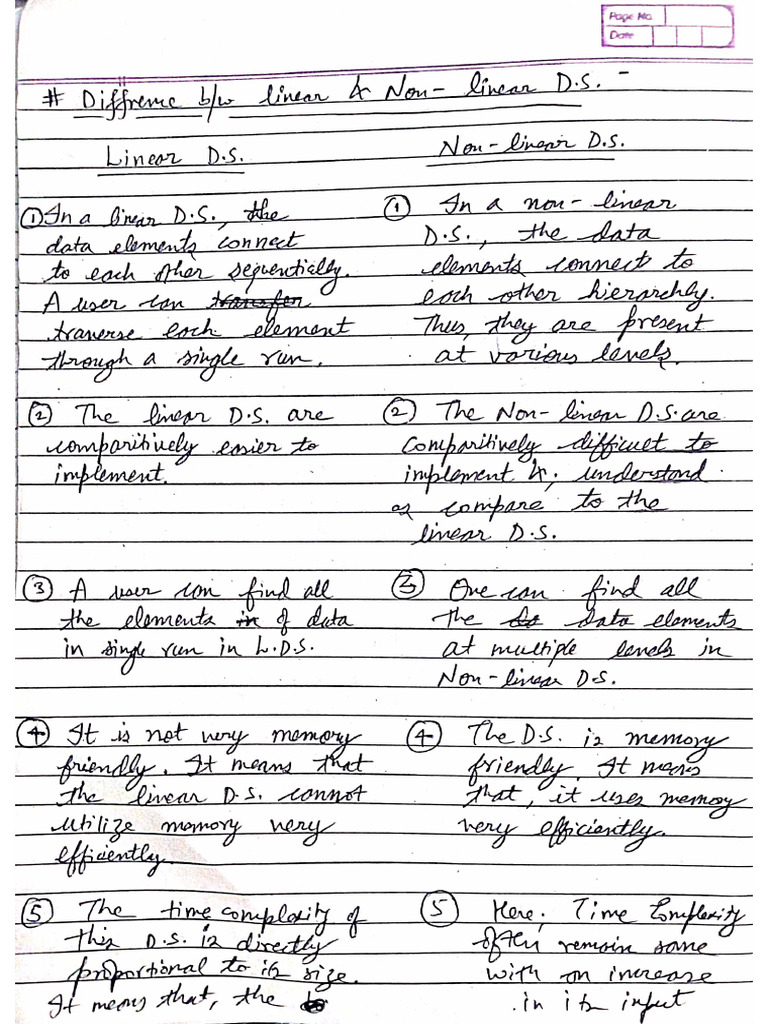 Page No.
Date
# Diffrence b/w linear & Non-linear D.S. -
Linear D.S.
① In a linear D.S., the
data elements connect
to each other sequentially.
A user can transfer
traverse each element
through a single run.
② The linear D.S. are
comparitively easier to
implement.
③ A user can find all
the elements in of data
in single run in L.D.S.
④ It is not very memory
friendly. It means that
the linear D.S. cannot
utilize memory very
efficiently.
⑤ The time complexity of
this D.S. is directly
proportional to its size.
It means that, the
Non-linear D.S.
① In a non-linear
D.S., the data
elements connect to
each other hierarchly.
Thus, they are present
at various levels.
② The Non-linear D.S. are
comparitively difficult to
implement &, understand
as compare to the
linear D.S.
③ One can find all
the data elements
at multiple levels in
Non-linear D.S.
④ The D.S. is memory
friendly. It means
that, it uses memory
very efficiently.
⑤ Here, Time Complexity
often remain same
with an increase
in its input